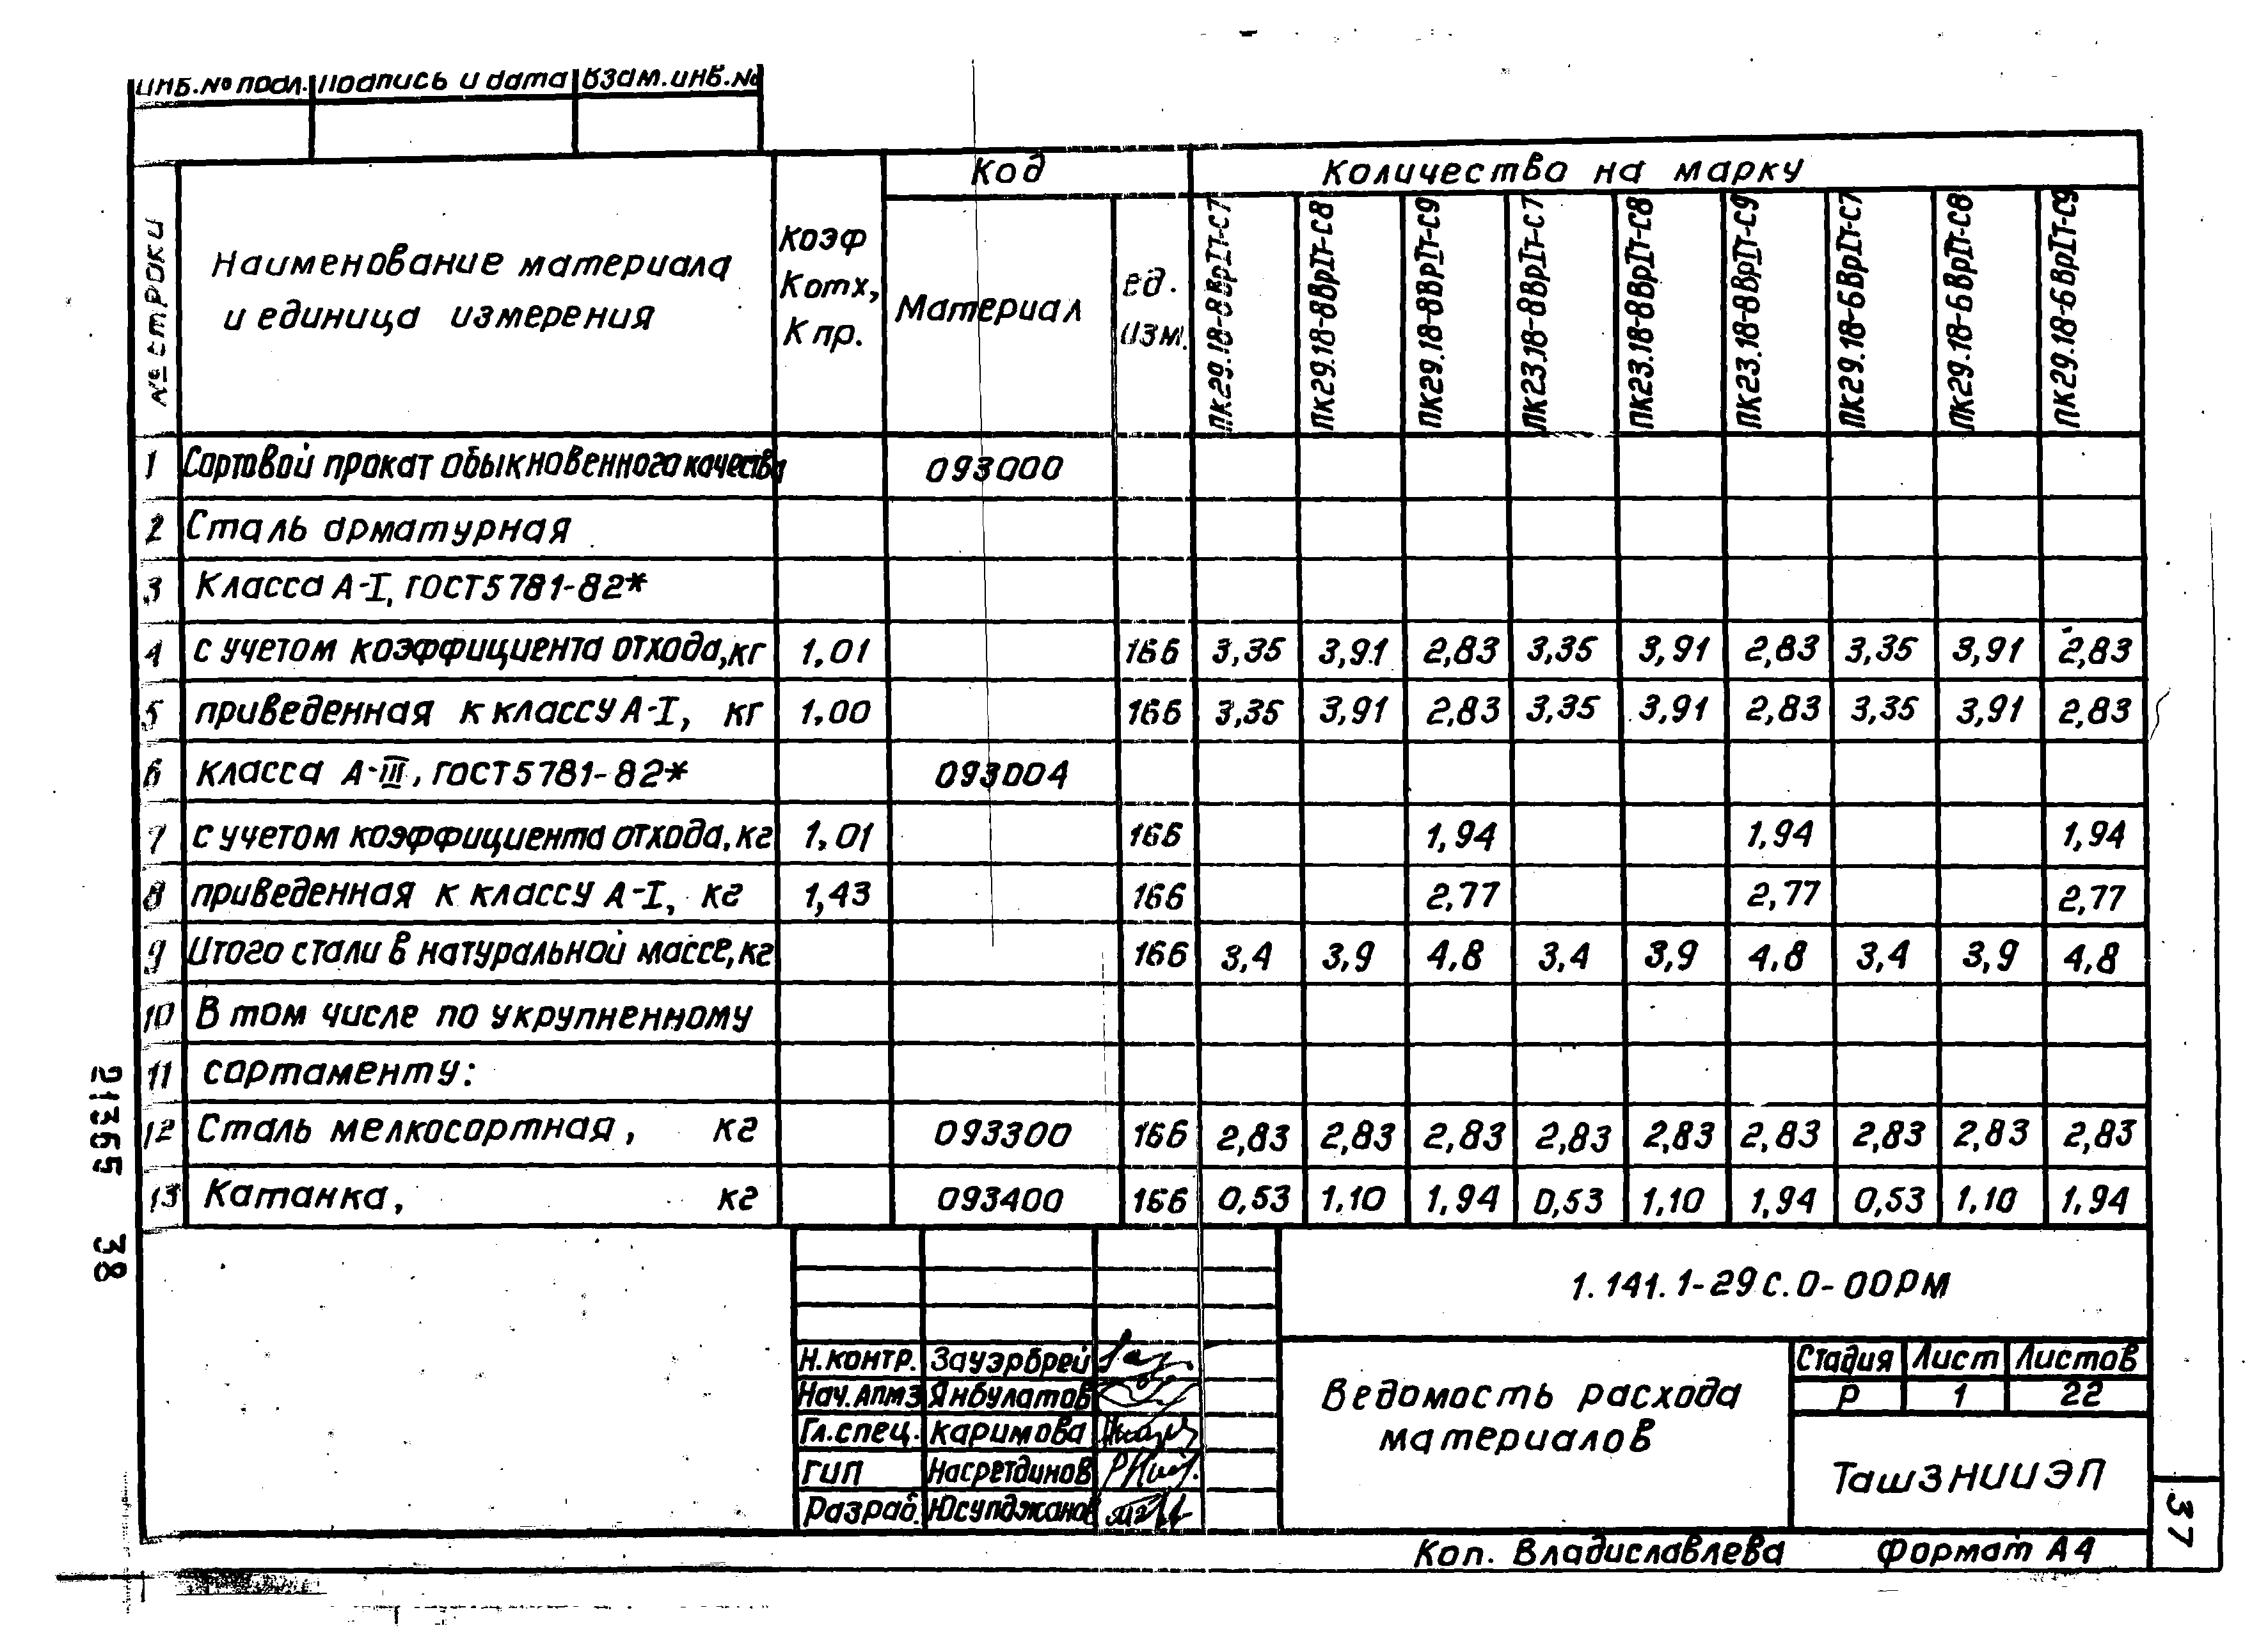 Инв.№ подл. Подпись и дата Взам.инв.№
№ строки
Наименование материала
и единица измерения
Коэф
Котх,
Кпр.
Код
Материал
ед.
изм.
Количество на марку
ПК29.18-8ВрIIт-С7
ПК29.18-8ВрIIт-С8
ПК29.18-8ВрIIт-С9
ПК23.18-8ВрIIт-С7
ПК23.18-8ВрIIт-С8
ПК23.18-8ВрIIт-С9
ПК29.18-6ВрIIт-С7
ПК29.18-6ВрIIт-С8
ПК29.18-6ВрIIт-С9
1 Сортовой прокат обыкновенного качества 093000
2 Сталь арматурная
3 Класса А-I, ГОСТ5781-82*
4 с учетом коэффициента отхода, кг 1,01 166 3,35 3,91 2,83 3,35 3,91 2,83 3,35 3,91 2,83
5 приведенная к классу А-I, кг 1,00 166 3,35 3,91 2,83 3,35 3,91 2,83 3,35 3,91 2,83
6 класса А-III, ГОСТ5781-82* 093004
7 с учетом коэффициента отхода, кг 1,01 166 1,94 1,94 1,94
8 приведенная к классу А-I, кг 1,43 166 2,77 2,77 2,77
9 Итого стали в натуральной массе, кг 166 3,4 3,9 4,8 3,4 3,9 4,8 3,4 3,9 4,8
10 В том числе по укрупненному
11 сортаменту:
12 Сталь мелкосортная, кг 093300 166 2,83 2,83 2,83 2,83 2,83 2,83 2,83 2,83 2,83
13 Катанка, кг 093400 166 0,53 1,10 1,94 0,53 1,10 1,94 0,53 1,10 1,94
21365 38
1.141.1-29с.0-00РМ
Н.контр. Зауэрбрей
Нач.АПМ3 Янбулатов
Гл.спец. Каримова
ГИП Насретдинов
Разраб. Юсупджанов
Ведомость расхода
материалов
Стадия Лист Листов
Р 1 22
ТашЗНИИЭП
37
Коп. Владиславлева Формат А4